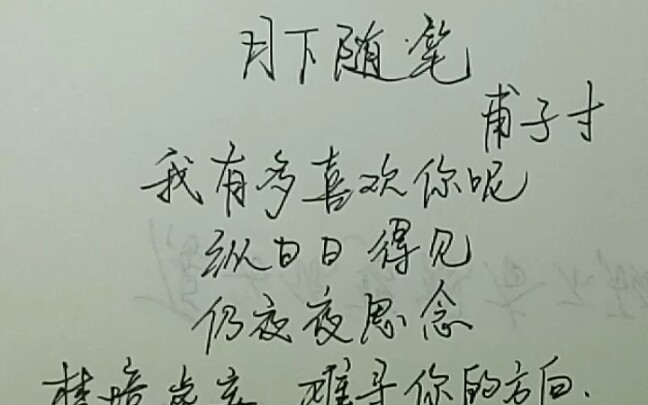 月下随笔
甫子寸
我有多喜欢你呢
纵日日得见
仍夜夜思念
难寻你的方向.